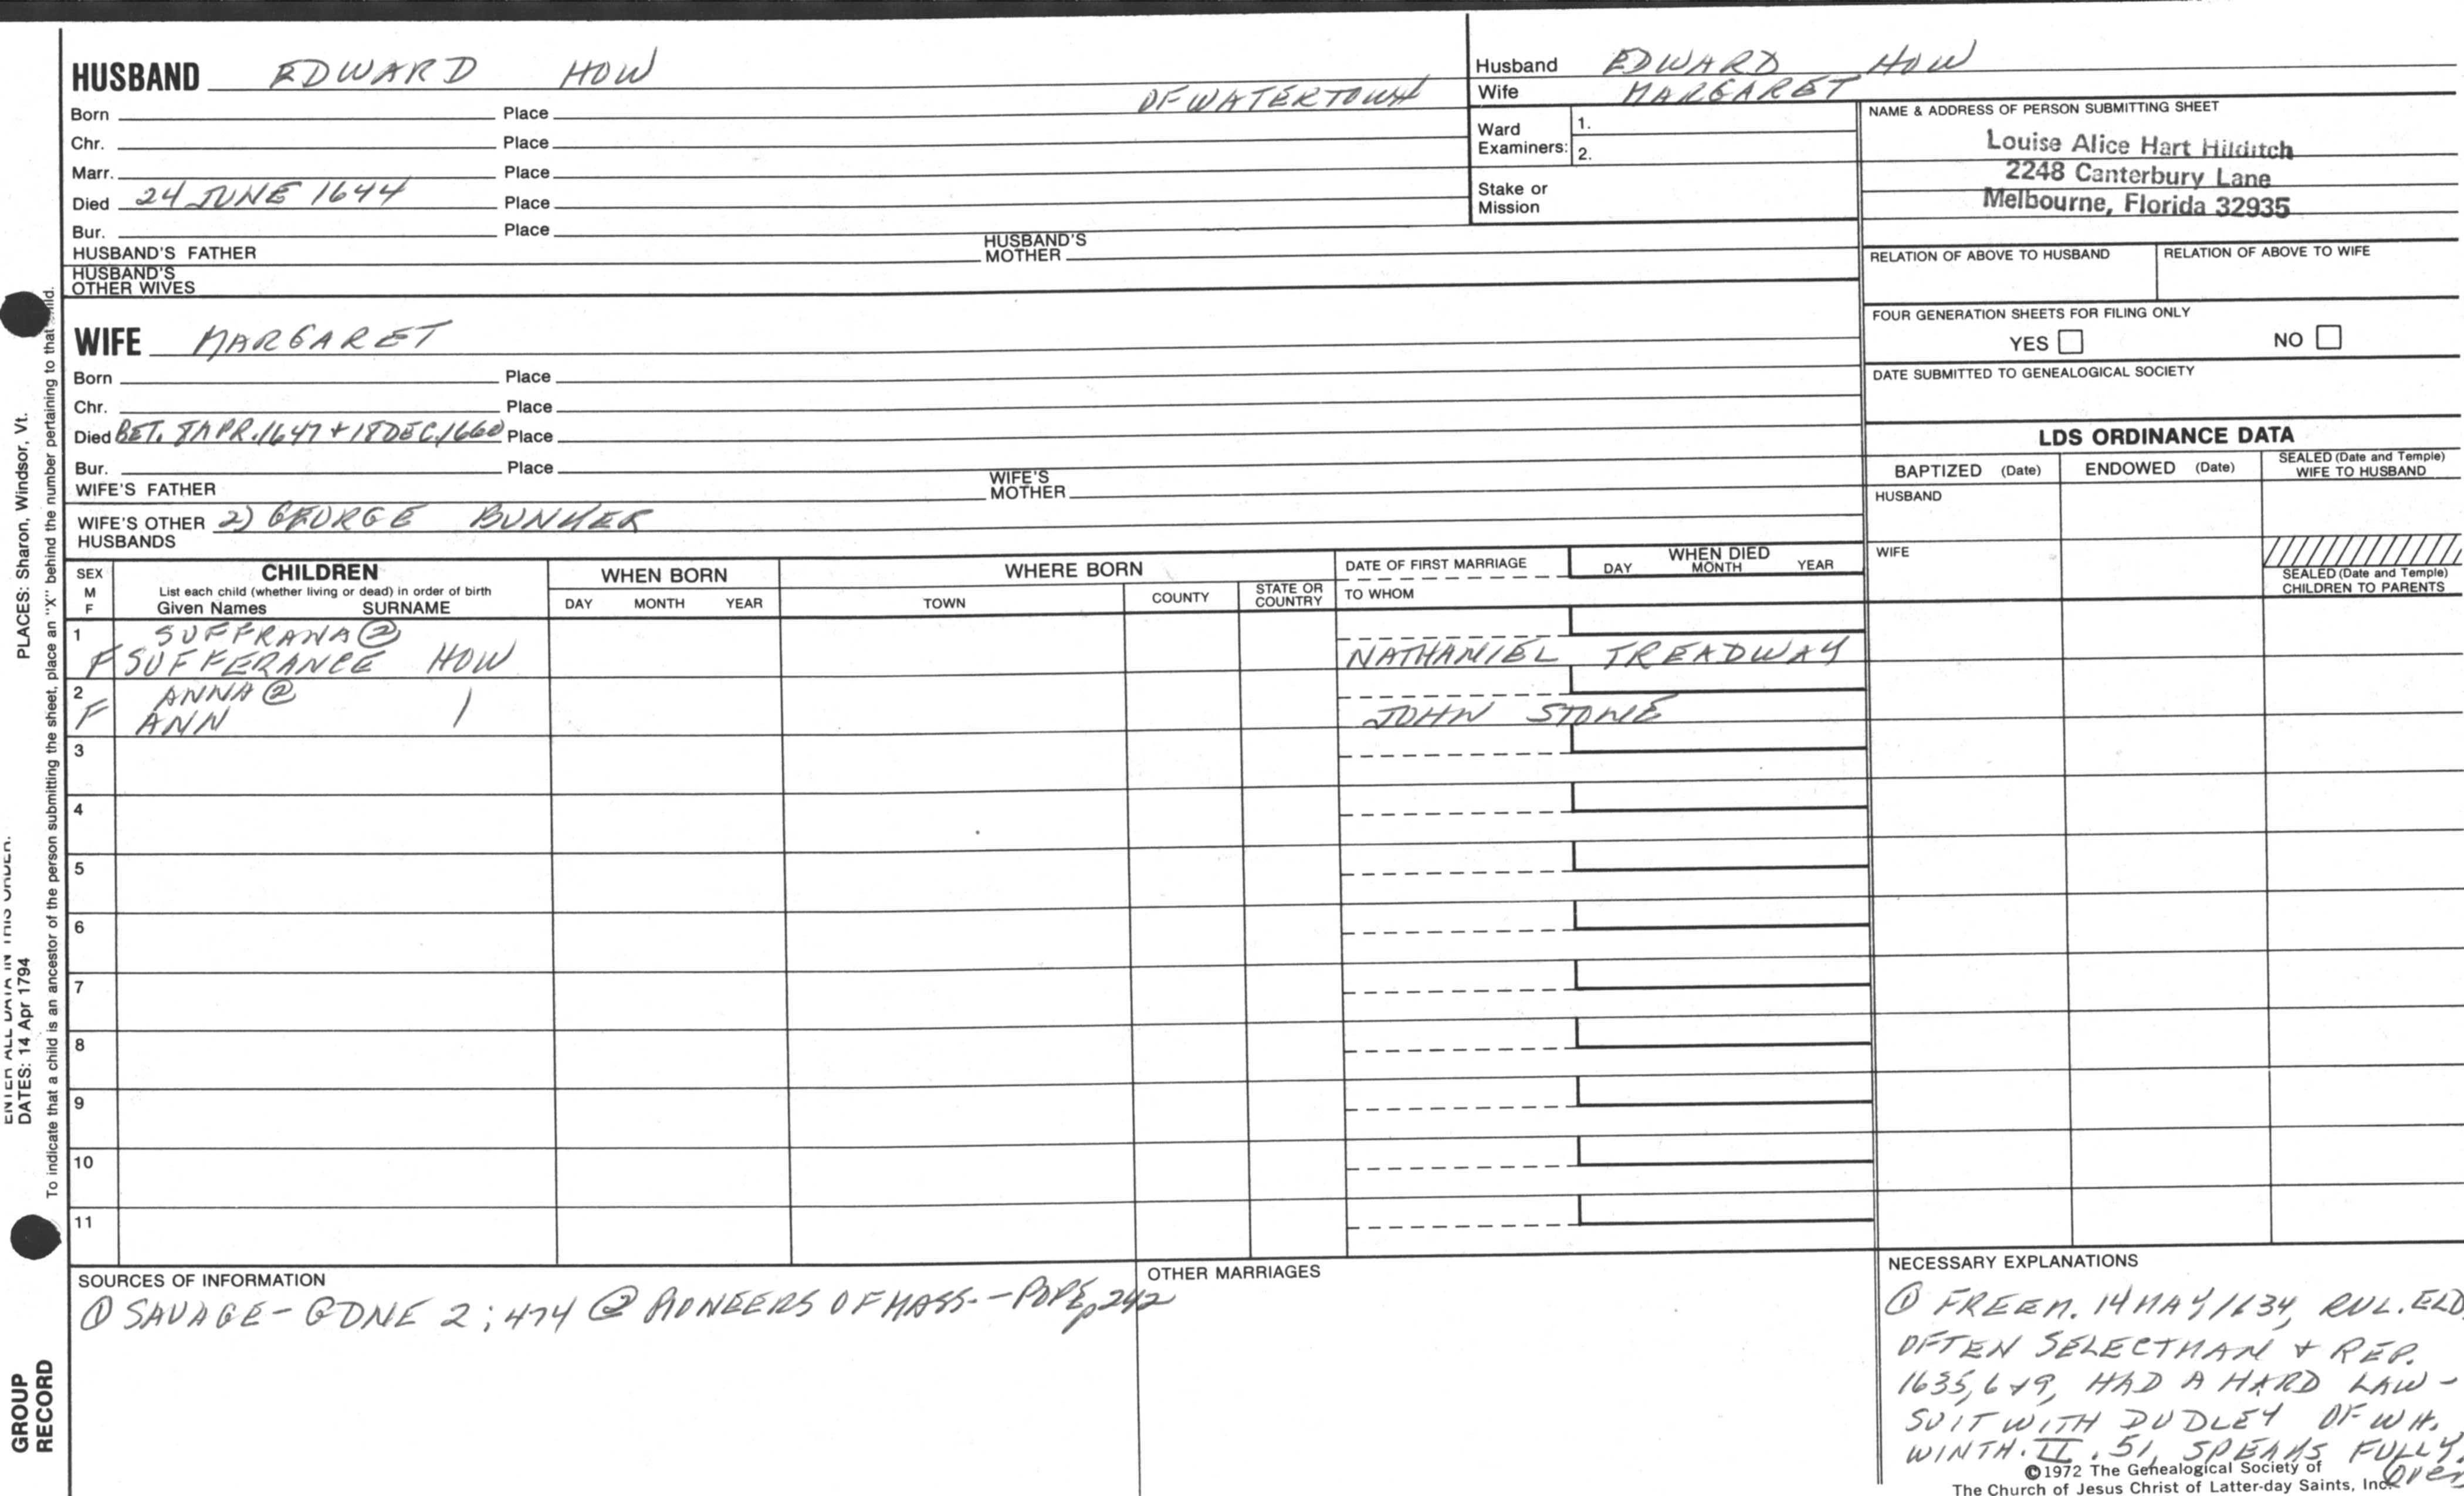 HUSBAND EDWARD HOW
OF WATERTOWN
Born Place
Chr. Place
Marr. Place
Died 24 JUNE 1644 Place
Bur. Place
HUSBAND'S FATHER HUSBAND'S MOTHER
HUSBAND'S OTHER WIVES
WIFE MARGARET
Born Place
Chr. Place
Died BET. 8 APR. 1647 + 18 DEC. 1660 Place
Bur. Place
WIFE'S FATHER WIFE'S MOTHER
WIFE'S OTHER HUSBANDS 2) GEORGE BUNKER
Husband EDWARD HOW
Wife MARGARET
Ward Examiners: 1.
2.
Stake or Mission
NAME & ADDRESS OF PERSON SUBMITTING SHEET
Louise Alice Hart Hilditch
2248 Canterbury Lane
Melbourne, Florida 32935
RELATION OF ABOVE TO HUSBAND RELATION OF ABOVE TO WIFE
FOUR GENERATION SHEETS FOR FILING ONLY
YES NO
DATE SUBMITTED TO GENEALOGICAL SOCIETY
LDS ORDINANCE DATA
BAPTIZED (Date) ENDOWED (Date) SEALED (Date and Temple) WIFE TO HUSBAND
HUSBAND
WIFE
SEALED (Date and Temple) CHILDREN TO PARENTS
SEX M F
CHILDREN
List each child (whether living or dead) in order of birth
Given Names SURNAME
WHEN BORN
DAY MONTH YEAR
WHERE BORN
TOWN COUNTY STATE OR COUNTRY
DATE OF FIRST MARRIAGE
TO WHOM
WHEN DIED
DAY MONTH YEAR
1 SUFFRANA ②
F SUFFERANCE HOW NATHANIEL TREADWAY
2 ANNA ②
F ANN JOHN STONE
3
4
5
6
7
8
9
10
11
SOURCES OF INFORMATION
① SAVAGE - GDNE 2; 474 ② PIONEERS OF MASS. - POPE, p 242
OTHER MARRIAGES
NECESSARY EXPLANATIONS
① FREEM. 14 MAY 1634, RUL. ELD
OFTEN SELECTMAN + REP.
1635, 6 + 9, HAD A HARD LAW-
SUIT WITH DUDLEY OF WH.
WINTH. II. 51, SPEAKS FULLY.
over
©1972 The Genealogical Society of
The Church of Jesus Christ of Latter-day Saints, Inc.
PLACES: Sharon, Windsor, Vt.
ENTER ALL DATA IN THIS ORDER:
DATES: 14 Apr 1794
To indicate that a child is an ancestor of the person submitting the sheet, place an "X" behind the number pertaining to that child.
GROUP
RECORD